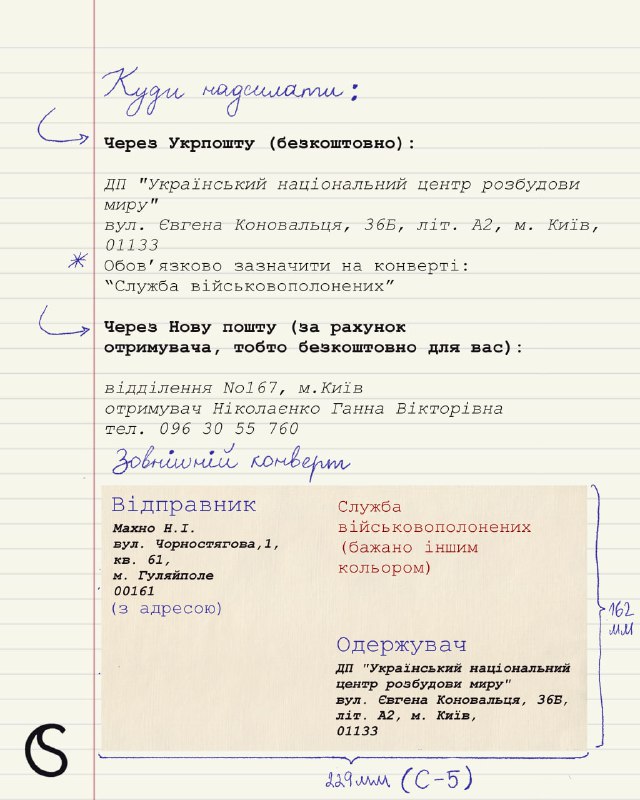 Куди надсилати:
Через Укрпошту (безкоштовно):
ДП "Український національний центр розбудови
миру"
вул. Євгена Коновальця, 36Б, літ. А2, м. Київ,
01133
* Обов’язково зазначити на конверті:
“Служба військовополонених”
Через Нову пошту (за рахунок
отримувача, тобто безкоштовно для вас):
відділення No167, м.Київ
отримувач Ніколаєнко Ганна Вікторівна
тел. 096 30 55 760
Зовнішній конверт
Відправник
Махно Н.І.
вул. Чорностягова,1,
кв. 61,
м. Гуляйполе
00161
(з адресою)
Служба
військовополонених
(бажано іншим
кольором)
162
мм
Одержувач
ДП "Український національний
центр розбудови миру"
вул. Євгена Коновальця, 36Б,
літ. А2, м. Київ,
01133
229мм (С-5)